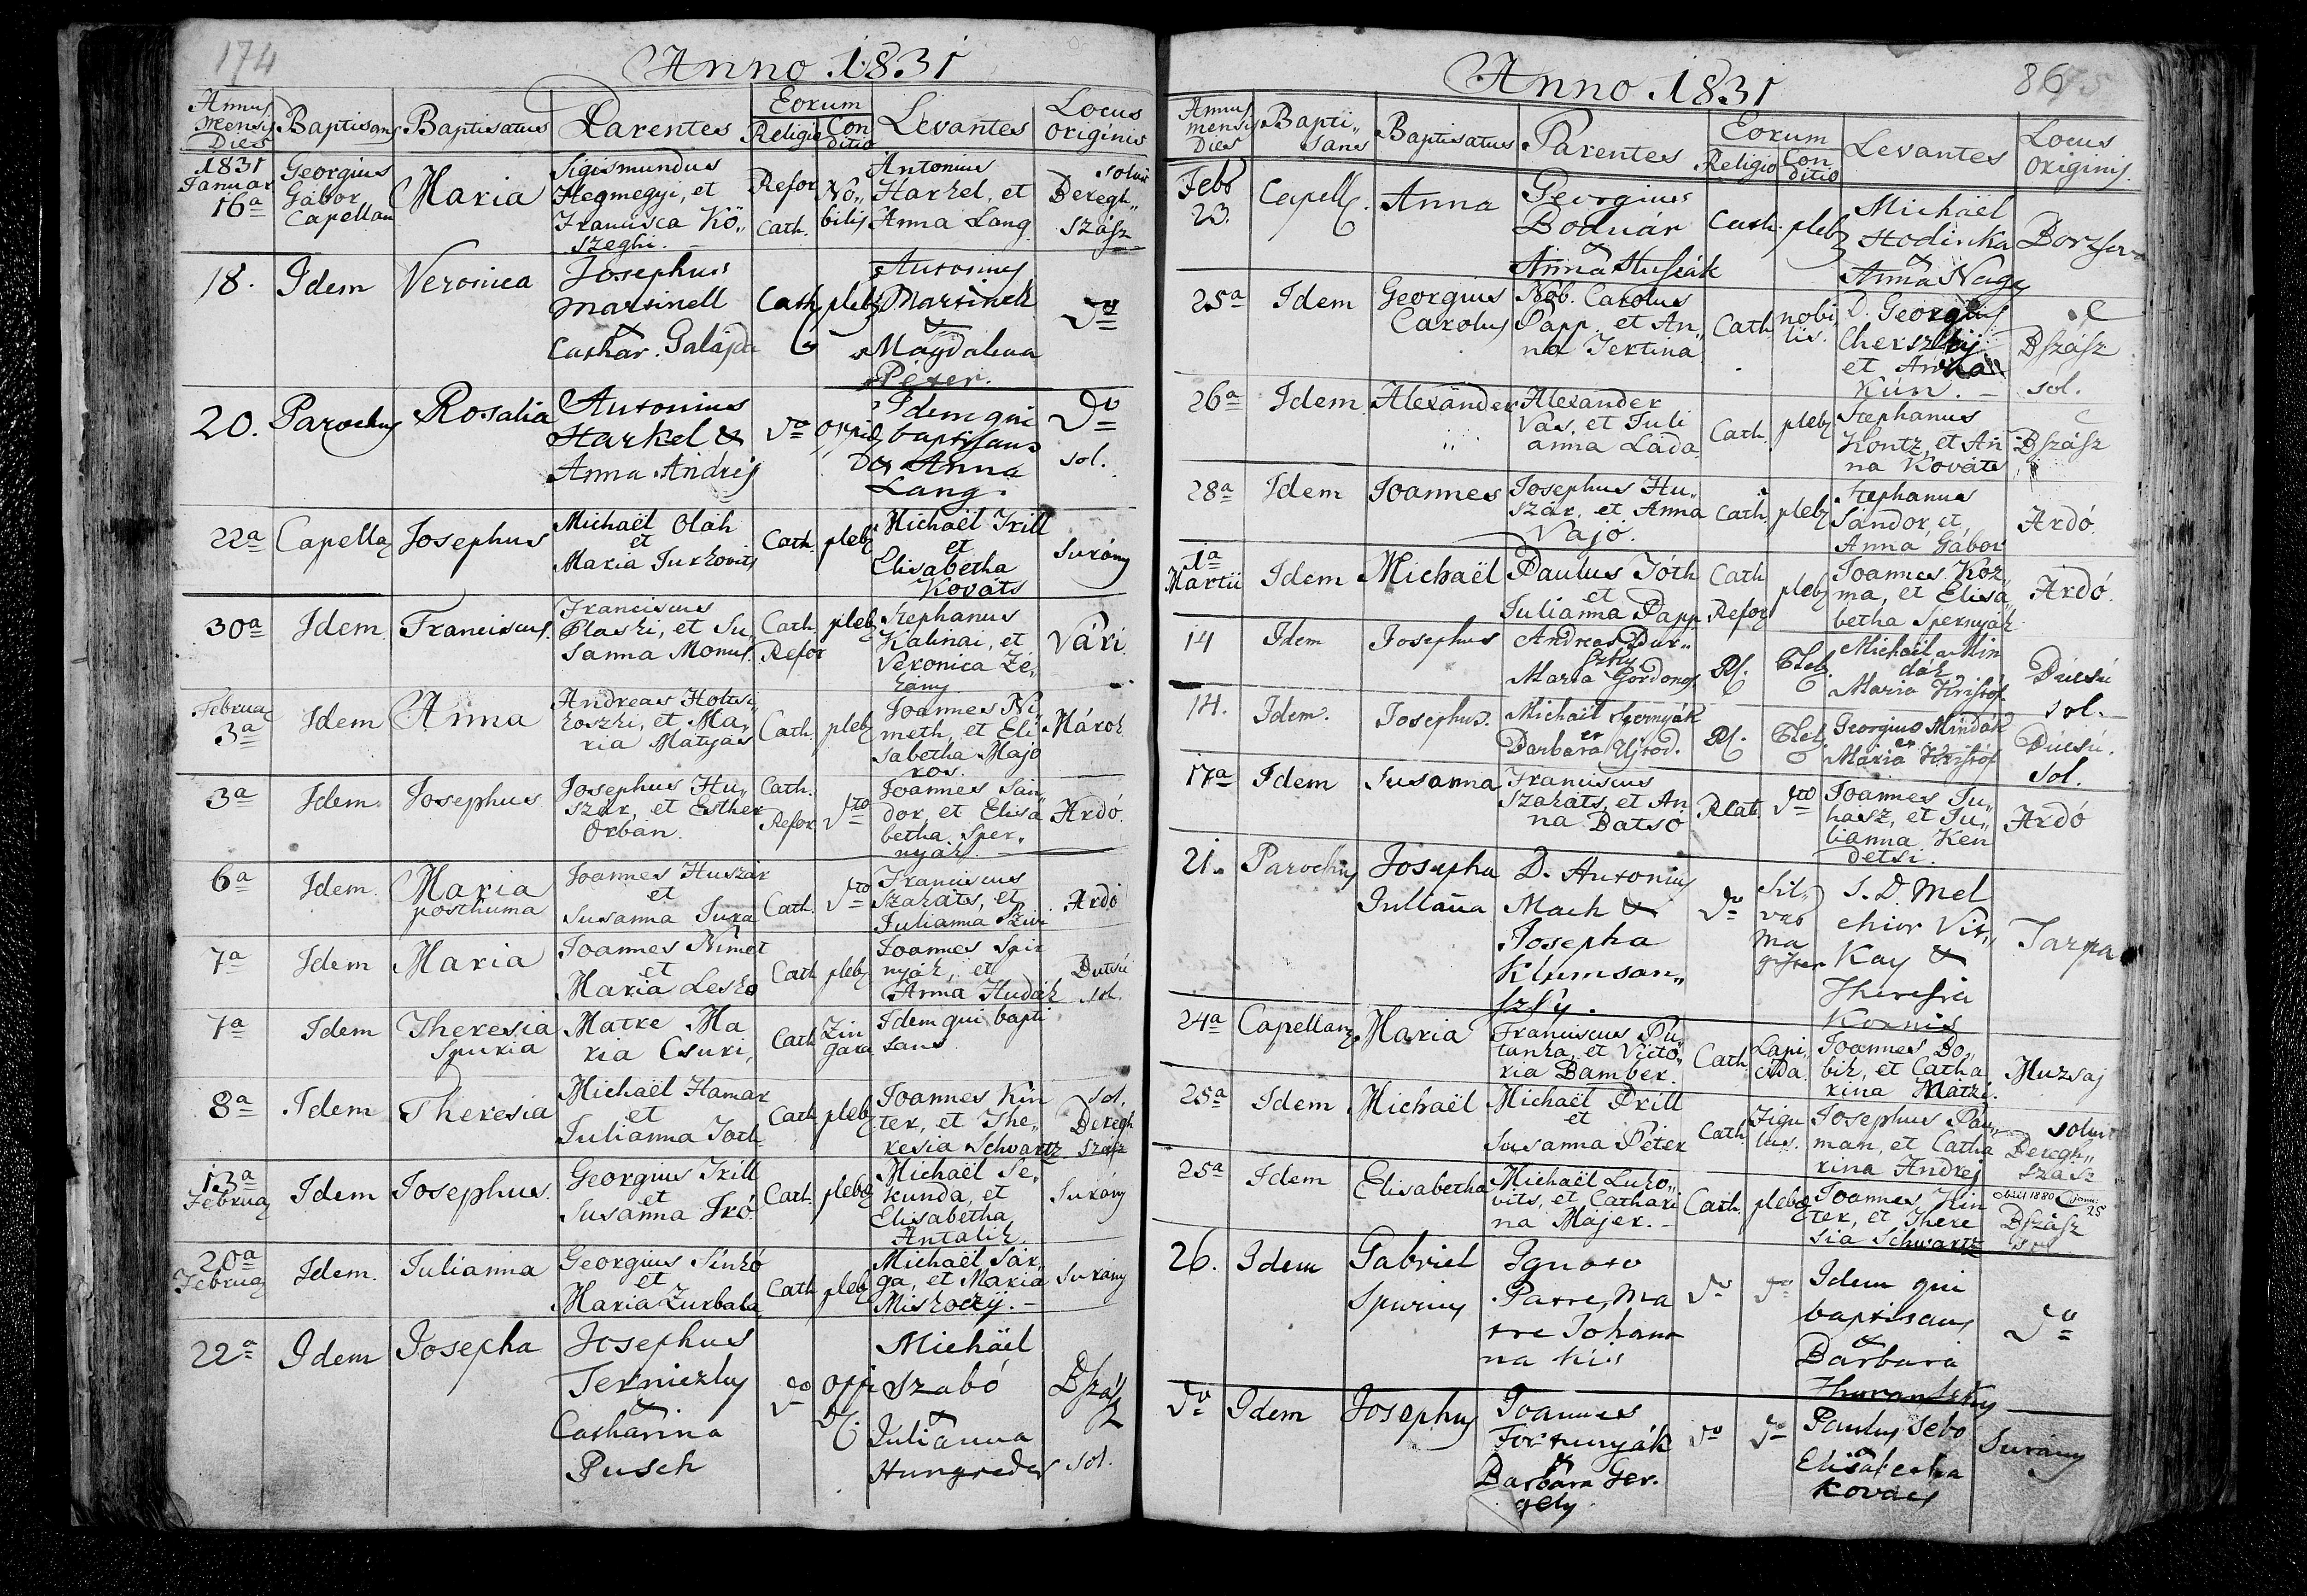 174
Anno 1831
Annus
Mensis
Dies
Baptisans
Baptisatus
Parentes
Eorum
Religio
Con
ditio
Levantes
Locus
originis
1831
Januar
16a
Georgius
Gábor
Capellan
Maria
Sigismundus
Hegmegyi, et
Francisca Kö„
szeghi.
Refor
Cath.
No„
bilis
Antonius
Harkel, et
Anna Lang
solvit
Beregh„
szász
18.
Idem
Veronica
Josephus
Martinell
&
Cathar. Galajda
Cath
pleb
Antonius
Martinell
&
Magdalena
Peter.
Do
20.
Parochus
Rosalia
Antonius
Harkel &
Anna Andrej
Do
oppid
Idem qui
baptisans
Anna
Lang.
Do
sol.
22a
Capellan
Josephus
Michaël Oláh
et
Maria Jurkovits
Cath
pleb
Michaël Trill
et
Elisabetha
Kováts
Surány
30a
Idem
Franciscus
Franciscus
Plaski, et Su„
sanna Monus.
Cath
Refor
pleb
Stephanus
Kalinai, et
Veronica Ze„
Vári
Februar
3a
Idem
Anna
Andreas Holtsi
koszki, et Ma„
ria Mátyás
Cath.
pleb
Joannes Ni
meth, et Eli
sabetha Majo
ros.
Márok
3a
Idem
Josephus
Josephus Hu„
szár, et Esther
Orbán.
Cath.
Refor
Dto
Joannes Sán„
dor, et Elisa
betha Sper„
nyák.
Ardó.
6a
Idem
Maria
posthuma
Joannes Huszár
et
Susanna Jura
Cath.
Dto
Franciscus
Szakáts, et
Julianna
Ardó
7a
Idem
Maria
Joannes Nimet
et
Maria Lesko
Cath
pleb
Joannes Spir
nyák, et
Anna Hudák
sol.
7a
Idem
Theresia
Spuria
Matre Ma
ria Csuri,
Cath
Zin
gara
Idem qui bapti
sans
8a
Idem
Theresia
Michaël Hamar
et
Julianna Toth
Cath
pleb
Joannes Kin
ter, et The„
resia Schwartz
sol.
Beregh
szász
13a
Februar
Idem
Josephus.
Georgius Trill
et
Susanna Író
Cath.
pleb
Michaël Se„
kunda, et
Elisabetha
Antalik.
Surány
20a
Februar
Idem.
Julianna
Georgius Sinkó
et
Maria Zurbala
Cath
pleb
Michaël Sár„
ga, et Maria
Miskoczÿ. –
Surány
22a
Idem
Josepha
Josephus
Terniczky
&
Catharina
Pusch
Do
oppi
d.
Michäel
Szabó
&
Julianna
Hungreder
Bszász
sol.
Anno 1831
86
Annus
mensis
Dies
Bapti„
sans
Baptisatus
Parentes
Eorum
Religio
Con
ditio
Levantes
Locus
Originis.
Febr
23.
Capell.
Anna
Georgius
Bodnár
&
Anna
Cath.
pleb
Michäel
Hodinka
&
Anna Nagy
25a
Idem
Georgius
Carolus
Nob. Carolus
Papp, et An„
na Tertina
Cath
nobi
lis.
D. Georgius
et Anna
Kún. –
Bszász
sol.
26a
Idem
Alexander
Alexander
Vas, et Juli
anna Láda
Cath.
pleb
Stephanus
Kontz, et An
na Kováts
Bszász
28a
Idem
Joannes
Josephus Hu„
szár, et Anna
Vajó.
Cath.
pleb
Stephanus
Sándor, et
Anna Gábor
Ardó.
1a
Martii
Idem
Michaël
Paulus Tóth
et
Julianna Papp
Cath
Refor
pleb
Joannes Koz„
ma, et Elisa„
betha Spernyák
Ardó.
14
Idem
Josephus
Maria Gordonos
Rf.
Pleb.
Michaël Min
dák
Maria Kristóf
Bucsú
sol.
14.
Idem.
Josephus.
Michaël Spernyák
et
Barbara Ujvod.
Rf.
Pleb.
Georgius Mindák
et
Maria Kristóf
Bucsú.
sol.
17a
Idem
Susanna
Franciscus
Szakáts, et An
na Batsó
Rcat.
Dto
Joannes Ju„
hasz, et Ju„
lianna Ken
detsi.
Ardó
21.
Parochus
Josepha
Julianna
D. Antonius
Mach &
Josepha
Klumsan„
szky.
Do
Sil„
var
Ma
gister
S. D. Mel
chior Vit„
Kay &
Theresia
Kornis
Tarpa
24a
Capellan
Maria
Franciscus Pu„
tanka, et Victo„
ria Bamber.
Cath
Lapi„
cida.
Joannes Do„
bik, et Catha
rina Matzi.
Muzsaj
25a
Idem
Michaël
Michaël Prill
et
Susanna Péter
Cath
Figu
lus.
Josephus Pau„
man, et Catha
rina Andrej
solvit
Beregh„
szász
25a
Idem
Elisabetha
Michaël Luko„
vits, et Cathari
na Majer. –
Cath.
pleb
Joannes Kin
ter, et There
sia Schwartz
obiit 1880
25
Bszász
sol
26.
Idem
Gabriel
Spurius
Ignoto
Patre, Ma
tre Johan
na Kis
Do
Do
Idem qui
baptisans
&
Barbara
Thuranszky
Do
Do
Idem
Josephus
Joannes
Fortunyák
&
Barbara Ger„
gely
Do
Do
Paulus Sebo
&
Elisabetha
Kovács
Surány